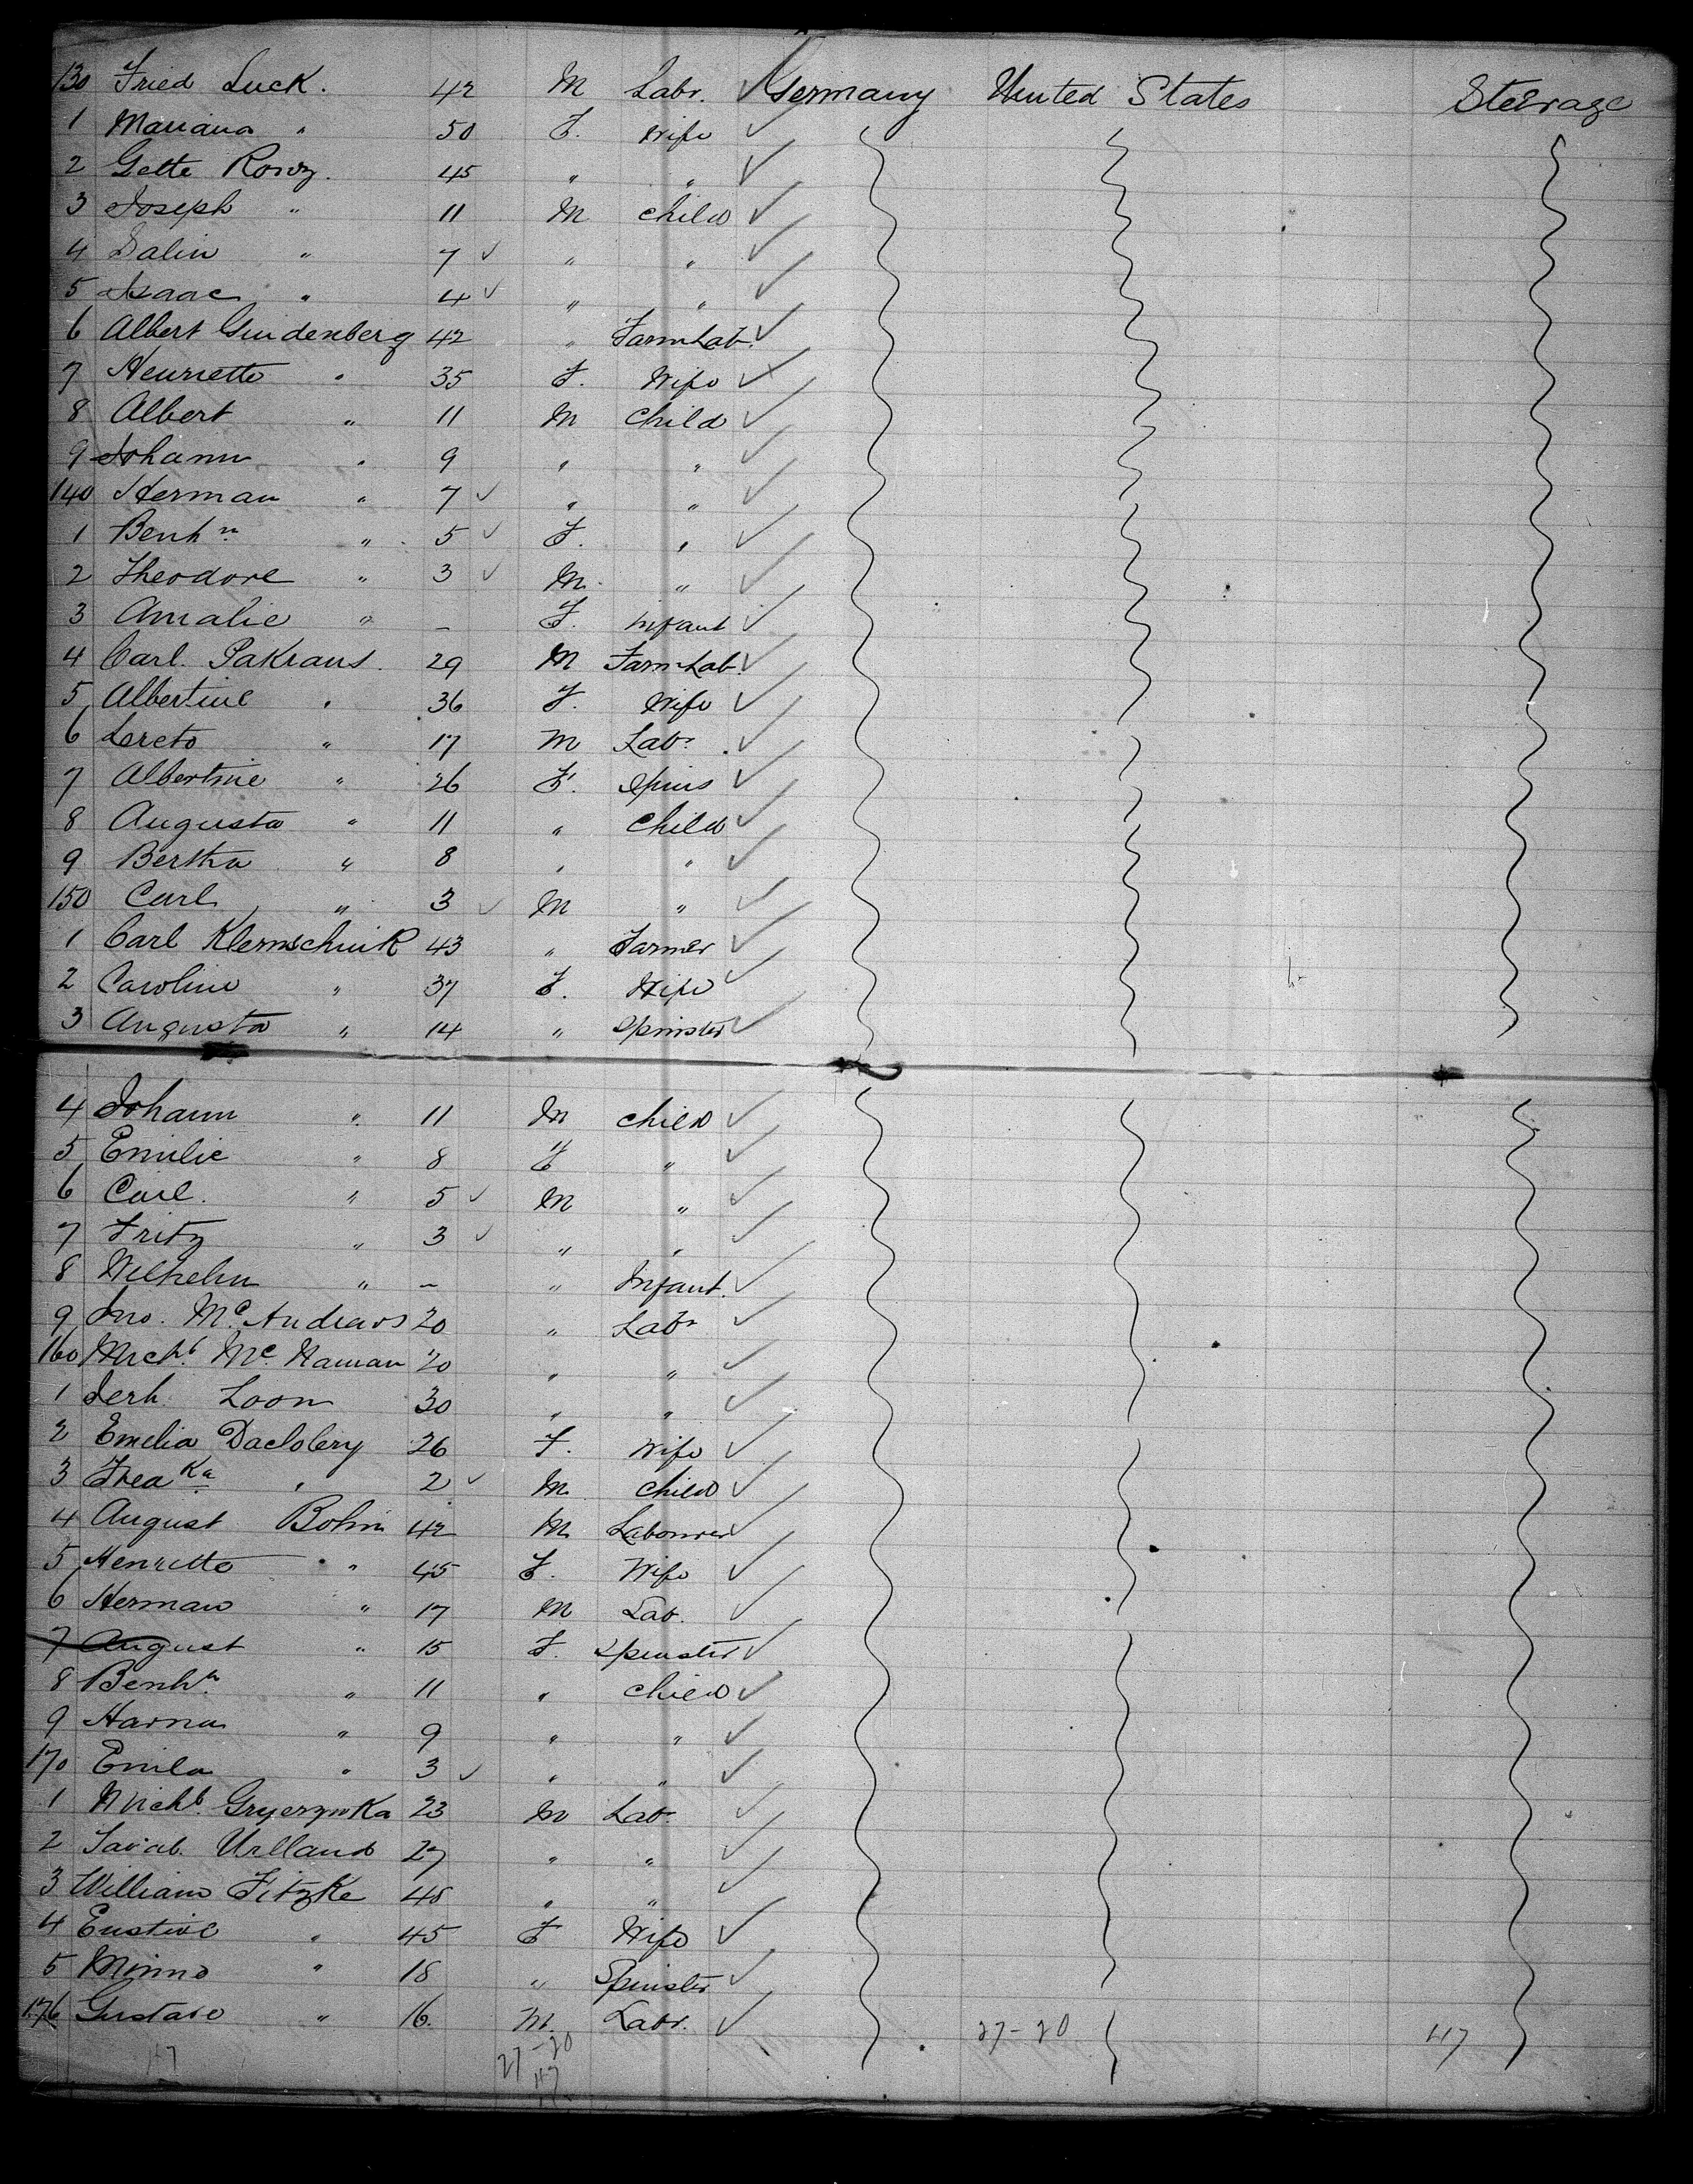 130 Fried Luck. 42 M Labr. ✓ Germany United States Steerage
1 Mariana " 50 F. Wife ✓
2 Gette Rowz. 45 " " ✓
3 Joseph " 11 M Child ✓
4 Salin " 7 ✓ " " ✓
5 Isaac " 4 ✓ " " ✓
6 Albert Guidenberg 42 " Farm Lab. ✓
7 Henriette " 35 F. Wife ✓
8 Albert " 11 M Child ✓
9 Johann " 9 " " ✓
140 Herman " 7 ✓ " " ✓
1 Benhn " 5 ✓ F. " ✓
2 Theodore " 3 ✓ M. " ✓
3 Amalie " – F. infant ✓
4 Carl. Pakraus. 29 M Farm Lab. ✓
5 Albertine " 36 F. Wife ✓
6 Loreto " 17 M Labr. ✓
7 Albertine " 26 F. Spins ✓
8 Augusta " 11 " Child ✓
9 Bertha " 8 " " ✓
150 Carl " 3 ✓ M " ✓
1 Carl Klemschuik 43 " Farmer ✓
2 Caroline " 37 F. Wife ✓
3 Augusta " 14 " Spinster ✓
4 Johann " 11 M Child ✓
5 Emilie " 8 F " ✓
6 Carl. " 5 ✓ M " ✓
7 Fritz " 3 ✓ " " ✓
8 Wilhelm " – " Infant. ✓
9 Jno. Mc Andrews 20 " Labr ✓
160 Michl. Mc Naman 20 " " ✓
1 Jerh Loon 30 " " ✓
2 Emelia Daclobery 26 F. Wife ✓
3 Freaka " 2 ✓ M. Child ✓
4 August Bohm 42 M Labourer ✓
5 Henriette " 45 F. Wife ✓
6 Herman " 17 M Lab. ✓
7 August " 15 F. Spinster ✓
8 Benhn. " 11 " Child ✓
9 Harna " 9 " " ✓
170 Emila " 3 ✓ " " ✓
1 Michl. Gryerzwka 23 M Lab. ✓
2 Jacob. Urlland 27 " " ✓
3 William Fitzke 48 " " ✓
4 Eustine " 45 F Wife ✓
5 Minna " 18 " Spinster ✓
176 Gustave " 16. M. Labr. ✓ 27-20 47
47 27-20
47